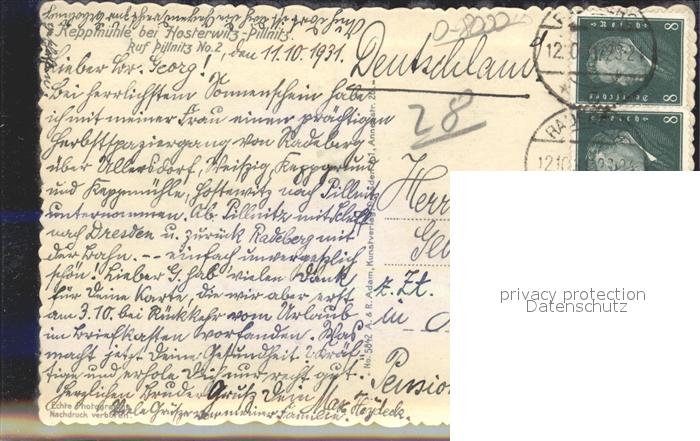 Keppmühle bei Hosterwitz-Pillnitz.
Ruf Pillnitz No. 2, den 11.10.1931.
Lieber Br. Georg!
Bei herrlichstem Sonnenschein habe
ich mit meiner Frau einen prächtigen
Herbstspaziergang von Radeberg
über Ullersdorf, Weißig, Keppgrund
und Keppmühle, Hosterwitz nach Pillnitz
unternommen. Ab Pillnitz mit Schiff
nach Dresden u. zurück Radeberg mit
der Bahn. -- einfach unvergeßlich
schön! Lieber G. hab vielen Dank
für Deine Karte, die wir aber erst
am 3.10. bei Rückkehr vom Urlaub
im Briefkasten vorfanden. Was
macht jetzt Deine Gesundheit? Kräf-
tige und erhole Dich nur recht gut.
Herzlichen Bruder Gruß Dein Max
Viele Grüße von meiner Familie.
Echte Photographie
Nachdruck verboten.
No. 5842 A. & R. Adam, Kunstverlag, Dresden
D-8000
Deutschland
28
Herrn
z. Zt.
in
Pension
8
8
privacy protection
Datenschutz